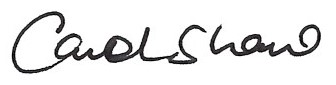 Carol Shaw